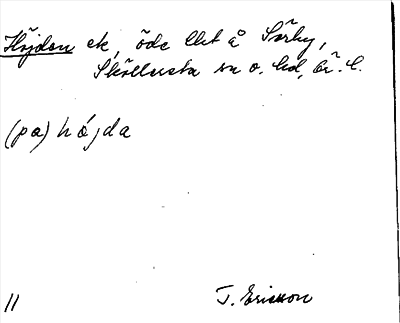 Höjden ek, öde lht å Sörby,
Sköllersta sn o. hd, Ör. l.
(på) höjda
11
T. Ericsson